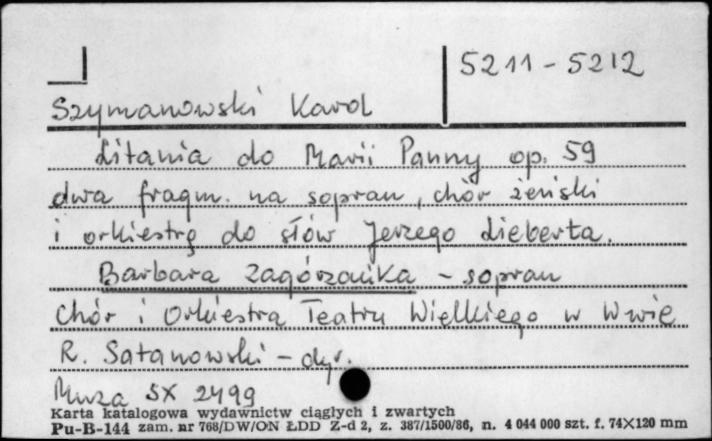 5211-5212
Szymanowski Karol
Litania do Marii Panny op. 59
dwa fragm. na sopran, chór żeński
i orkiestrę do słów Jerzego Lieberta.
Barbara Zagórzanka - sopran
Chór i Orkiestra Teatru Wielkiego w W-wie
R. Satanowski - dyr.
Muza SX 2499
Karta katalogowa wydawnictw ciągłych i zwartych
Pu-B-144 zam. nr 768/DW/ON ŁDD Z-d 2, z. 387/1500/86, n. 4 044 000 szt. f. 74×120 mm